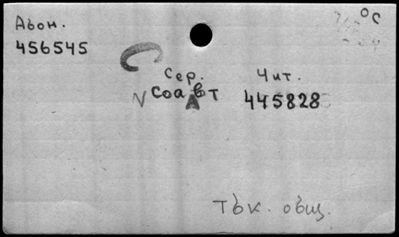 Авон. °C
456545
Сер. Чит.
V Соавт 445828
Тък. общ.